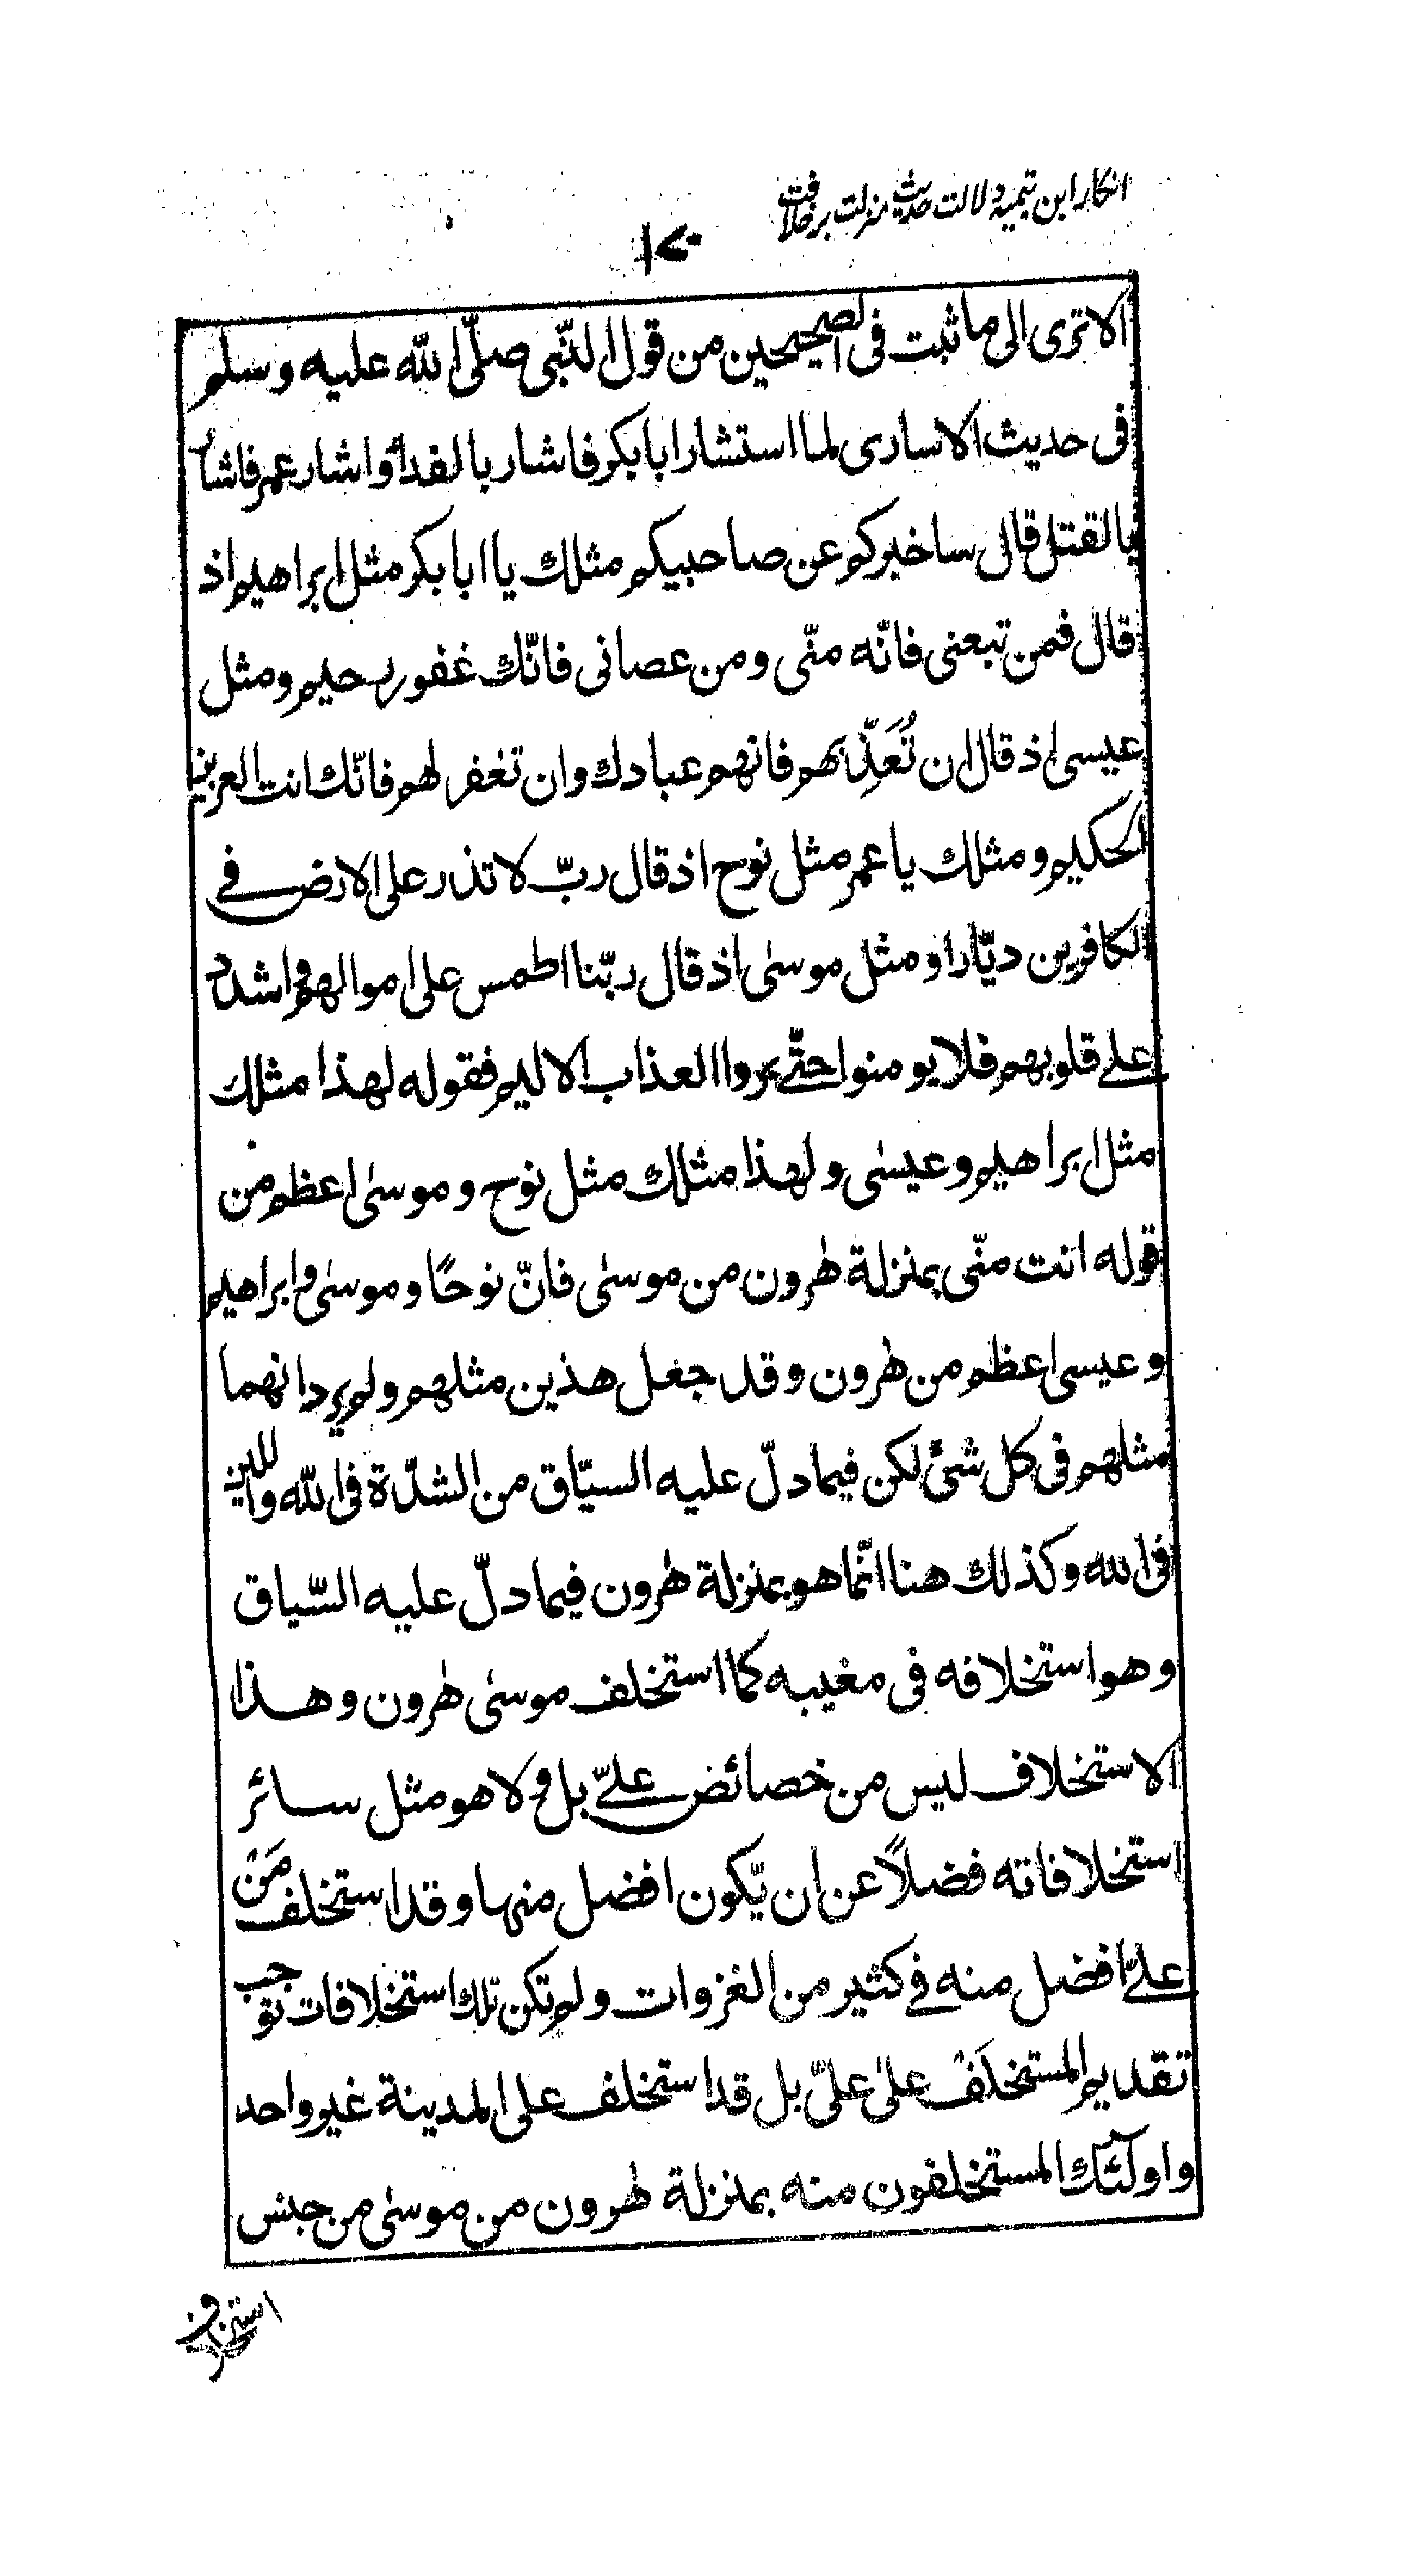 انکار ابن تیمیه دلالت حدیث منزلت بر خلافت
۱۷۰
الا ترى الى ما ثبت فى الصحيحين من قول النّبى صلّى اللّه عليه وسلم
فى حديث الاسارى لما استشار ابا بكر فاشار بالفداء واشار عمر فاشار
بالقتل قال ساخبركم عن صاحبيكم مثلك يا ابا بكر مثل ابراهيم اذ
قال فمن تبعنى فانّه منّى ومن عصانى فانّك غفور رحيم ومثل
عيسى اذ قال ان تُعَذِّبهم فانهم عبادك وان تغفر لهم فانّك انت العزيز
الحكيم ومثلك يا عمر مثل نوح اذ قال ربّ لا تذر على الارض فے
الكافرين ديّارا ومثل موسىٰ اذ قال ربّنا اطمس على اموالهم واشدد
علے قلوبهم فلا يومنوا حتّے يروا العذاب الاليم فقوله لهذا مثلك
مثل ابراهيم وعيسٰى ولهذا مثلك مثل نوح وموسىٰ اعظم من
قوله انت منّى بمنزلة هٰرون من موسىٰ فانّ نوحًا وموسىٰ وابراهيم
وعيسى اعظم من هٰرون وقد جعل هذين مثلهم ولم يرد انهما
مثلهم فى كل شئ لكن فيما دلّ عليه السيّاق من الشدّة فى اللّه واللين
فى الله وكذلك هنا انّما هو بمنزلة هٰرون فيما دلّ عليه السّياق
وهو استخلافه فى مغيبه كما استخلف موسىٰ هٰرون وهذا
الاستخلاف ليس من خصائض علےّ بل ولا هو مثل سائر
استخلافاته فضلاً عن ان يّكون افضل منها وقد استخلف مَنْ
علےّ افضل منه فے كثير من الغزوات ولم تكن تلك استخلافات توجب
تقديم المستخلَف علىٰ علىّ بل قد استخلف على المدينة غير واحد
واولٓئك المستخلفون منه بمنزلة هٰرون من موسىٰ من جنس